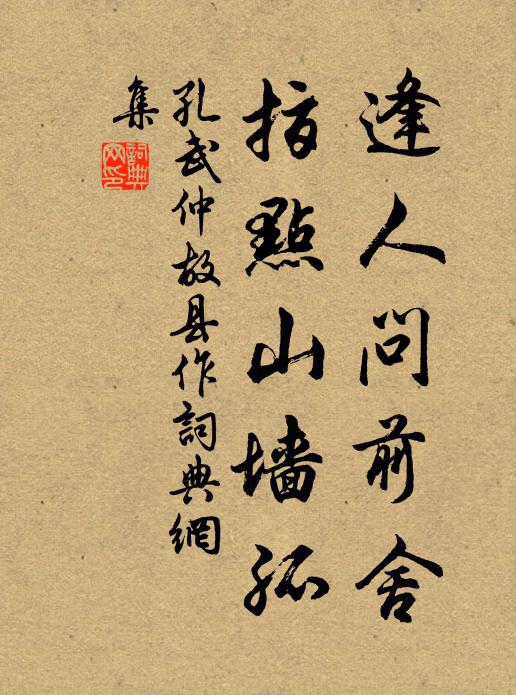 逢人问前舍
指點山墙孤
孔武仲故县作詞典網
集
詞典網印